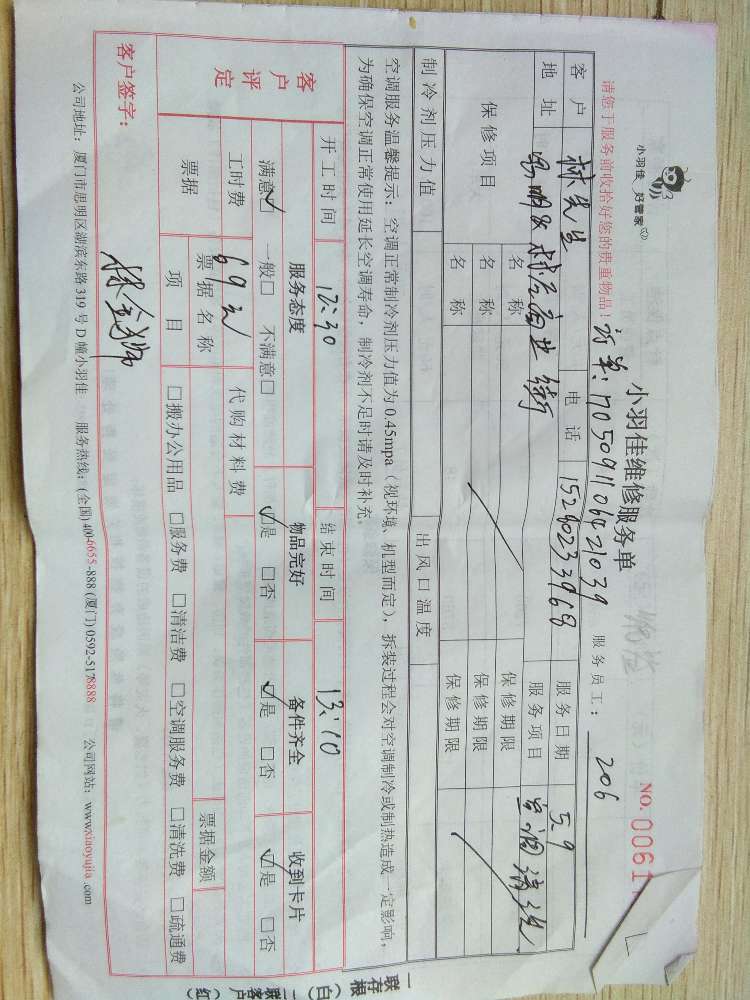 小羽佳 好管家
小羽佳维修服务单
NO. 0061
请您于服务前收拾好您的贵重物品！
订单：1705091106421039
服务员工： 206
客户 林先生 电话 15280233968 服务日期 5.9
地址 商业街 服务项目 空调清洗
保修项目 名称 保修期限
名称 保修期限
名称 保修期限
制冷剂压力值 出风口温度
空调服务温馨提示：空调正常制冷剂压力值为0.45mpa（视环境、机型而定），拆装过程会对空调制冷或制热造成一定影响，
为确保空调正常使用延长空调寿命，制冷剂不足时请及时补充。
开工时间 12:30 结束时间 13:10
客户评定 服务态度 物品完好 备件齐全 收到卡片
满意☑ 一般□ 不满意□ ☑是 □否 ☑是 □否 ☑是 □否
工时费 69元 代购材料费
票据 票据名称 票据金额
项目 □搬办公用品 □服务费 □清洁费 □空调服务费 □清洗费 □疏通费
客户签字：
公司地址：厦门市思明区湖滨东路319号D幢小羽佳 服务热线：(全国)400-6655-888 (厦门)0592-5178888 公司网站：www.xiaoyujia.com
一联存根（白）二联客户（红）